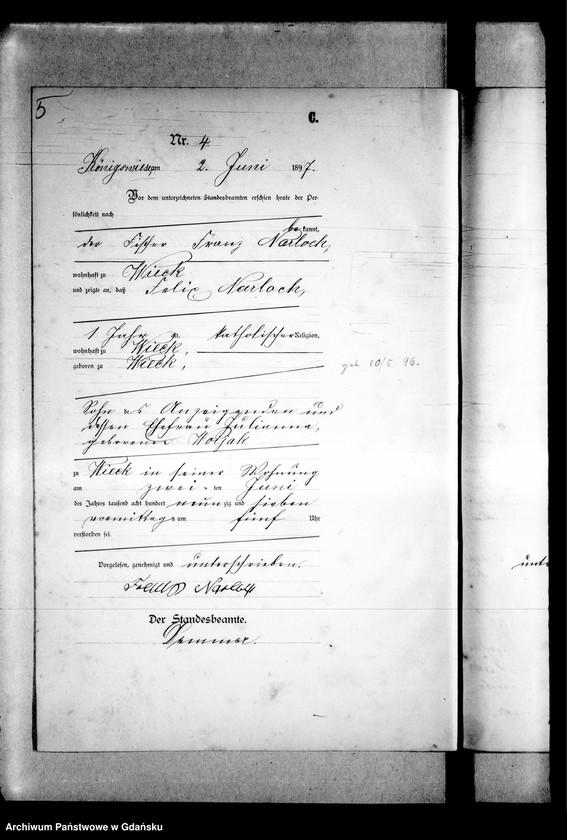 5
C.
Nr. 4
Königswiese am 2. Juni 1897.
Vor dem unterzeichneten Standesbeamten erschien heute der Per-
sönlichkeit nach
be kannt,
der Fischer Franz Narloch,
wohnhaft zu Wieck
und zeigte an, daß Felix Narloch,
1 Jahr katholischer Religion,
wohnhaft zu Wieck,
geboren zu Wieck,
geb 10/5 96.
Sohn es Anzeigenden und
dessen Ehefrau Julianna,
geborenen
zu Wieck in seiner Wohnung
am zwei-ten Juni
des Jahres tausend acht hundert neun zig und sieben
vormittags um fünf Uhr
verstorben sei.
Vorgelesen, genehmigt und unterschrieben.
Narloch
Der Standesbeamte.
Archiwum Państwowe w Gdańsku